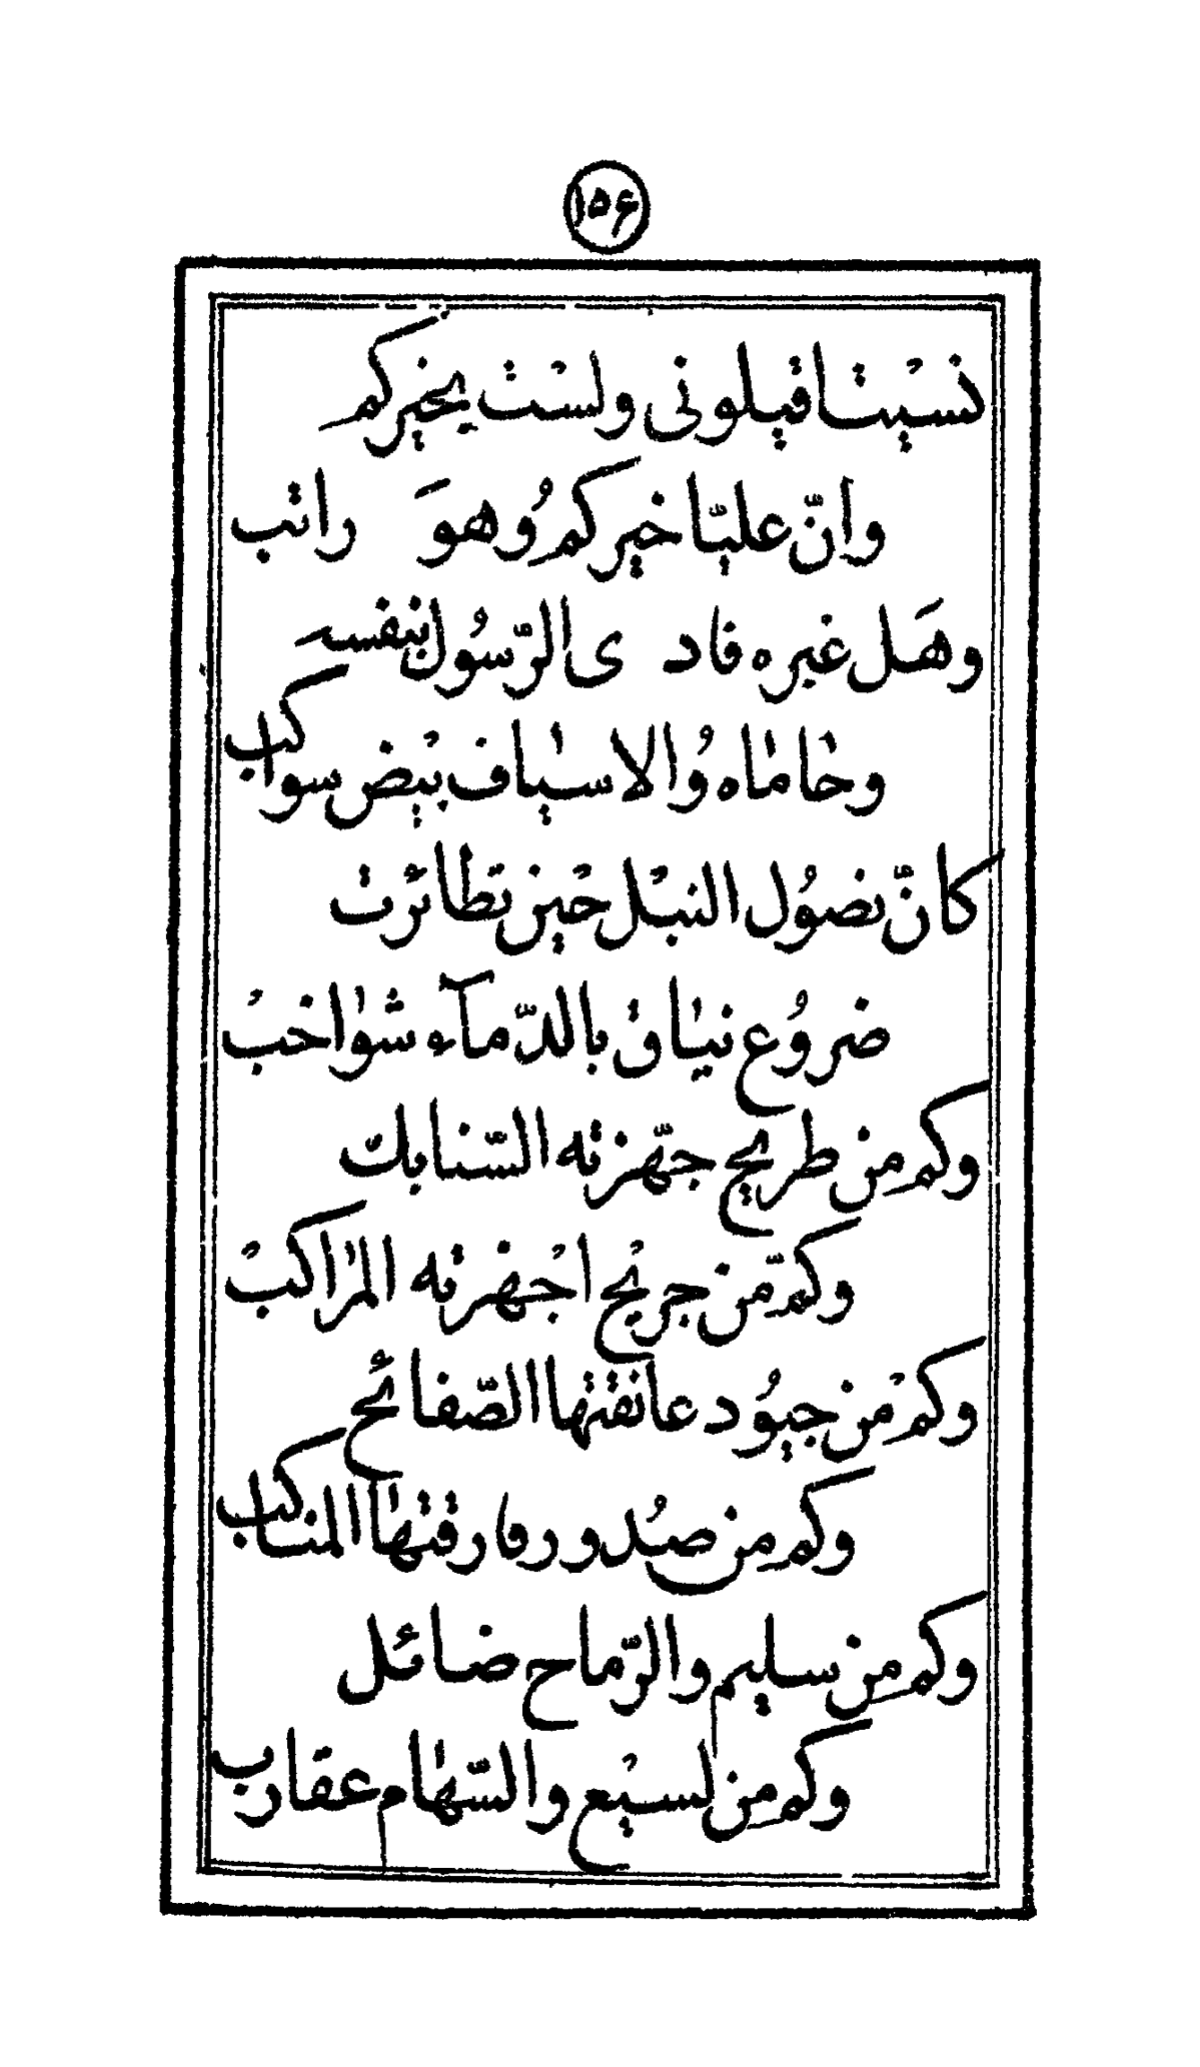 ۱۵۶
نسیْتا قیلونی ولسْت بخیرکم
وانّ علیّا خیرکم وُهوَ راتب
وهَل غیره فادی الرّسوُل بنفسه
وحٰامٰاه وُالاسیٰاف بیْض سواکب
کانّ نصوُل النبْل حیْن تطائرت
ضروُع نیٰاق بالدّمآء شوٰاخبْ
وکم من طریح جهّزته السّنابک
وکم مّن جریْح اجْهزته المرٰاکبْ
وکم منْ جیوُد عانقتها الصّفائح
وکم من صدُور فارقتهٰا المناکب
وکم من سلیم والرّماح ضائل
وکم من لسیْع والسّهٰام عقارب